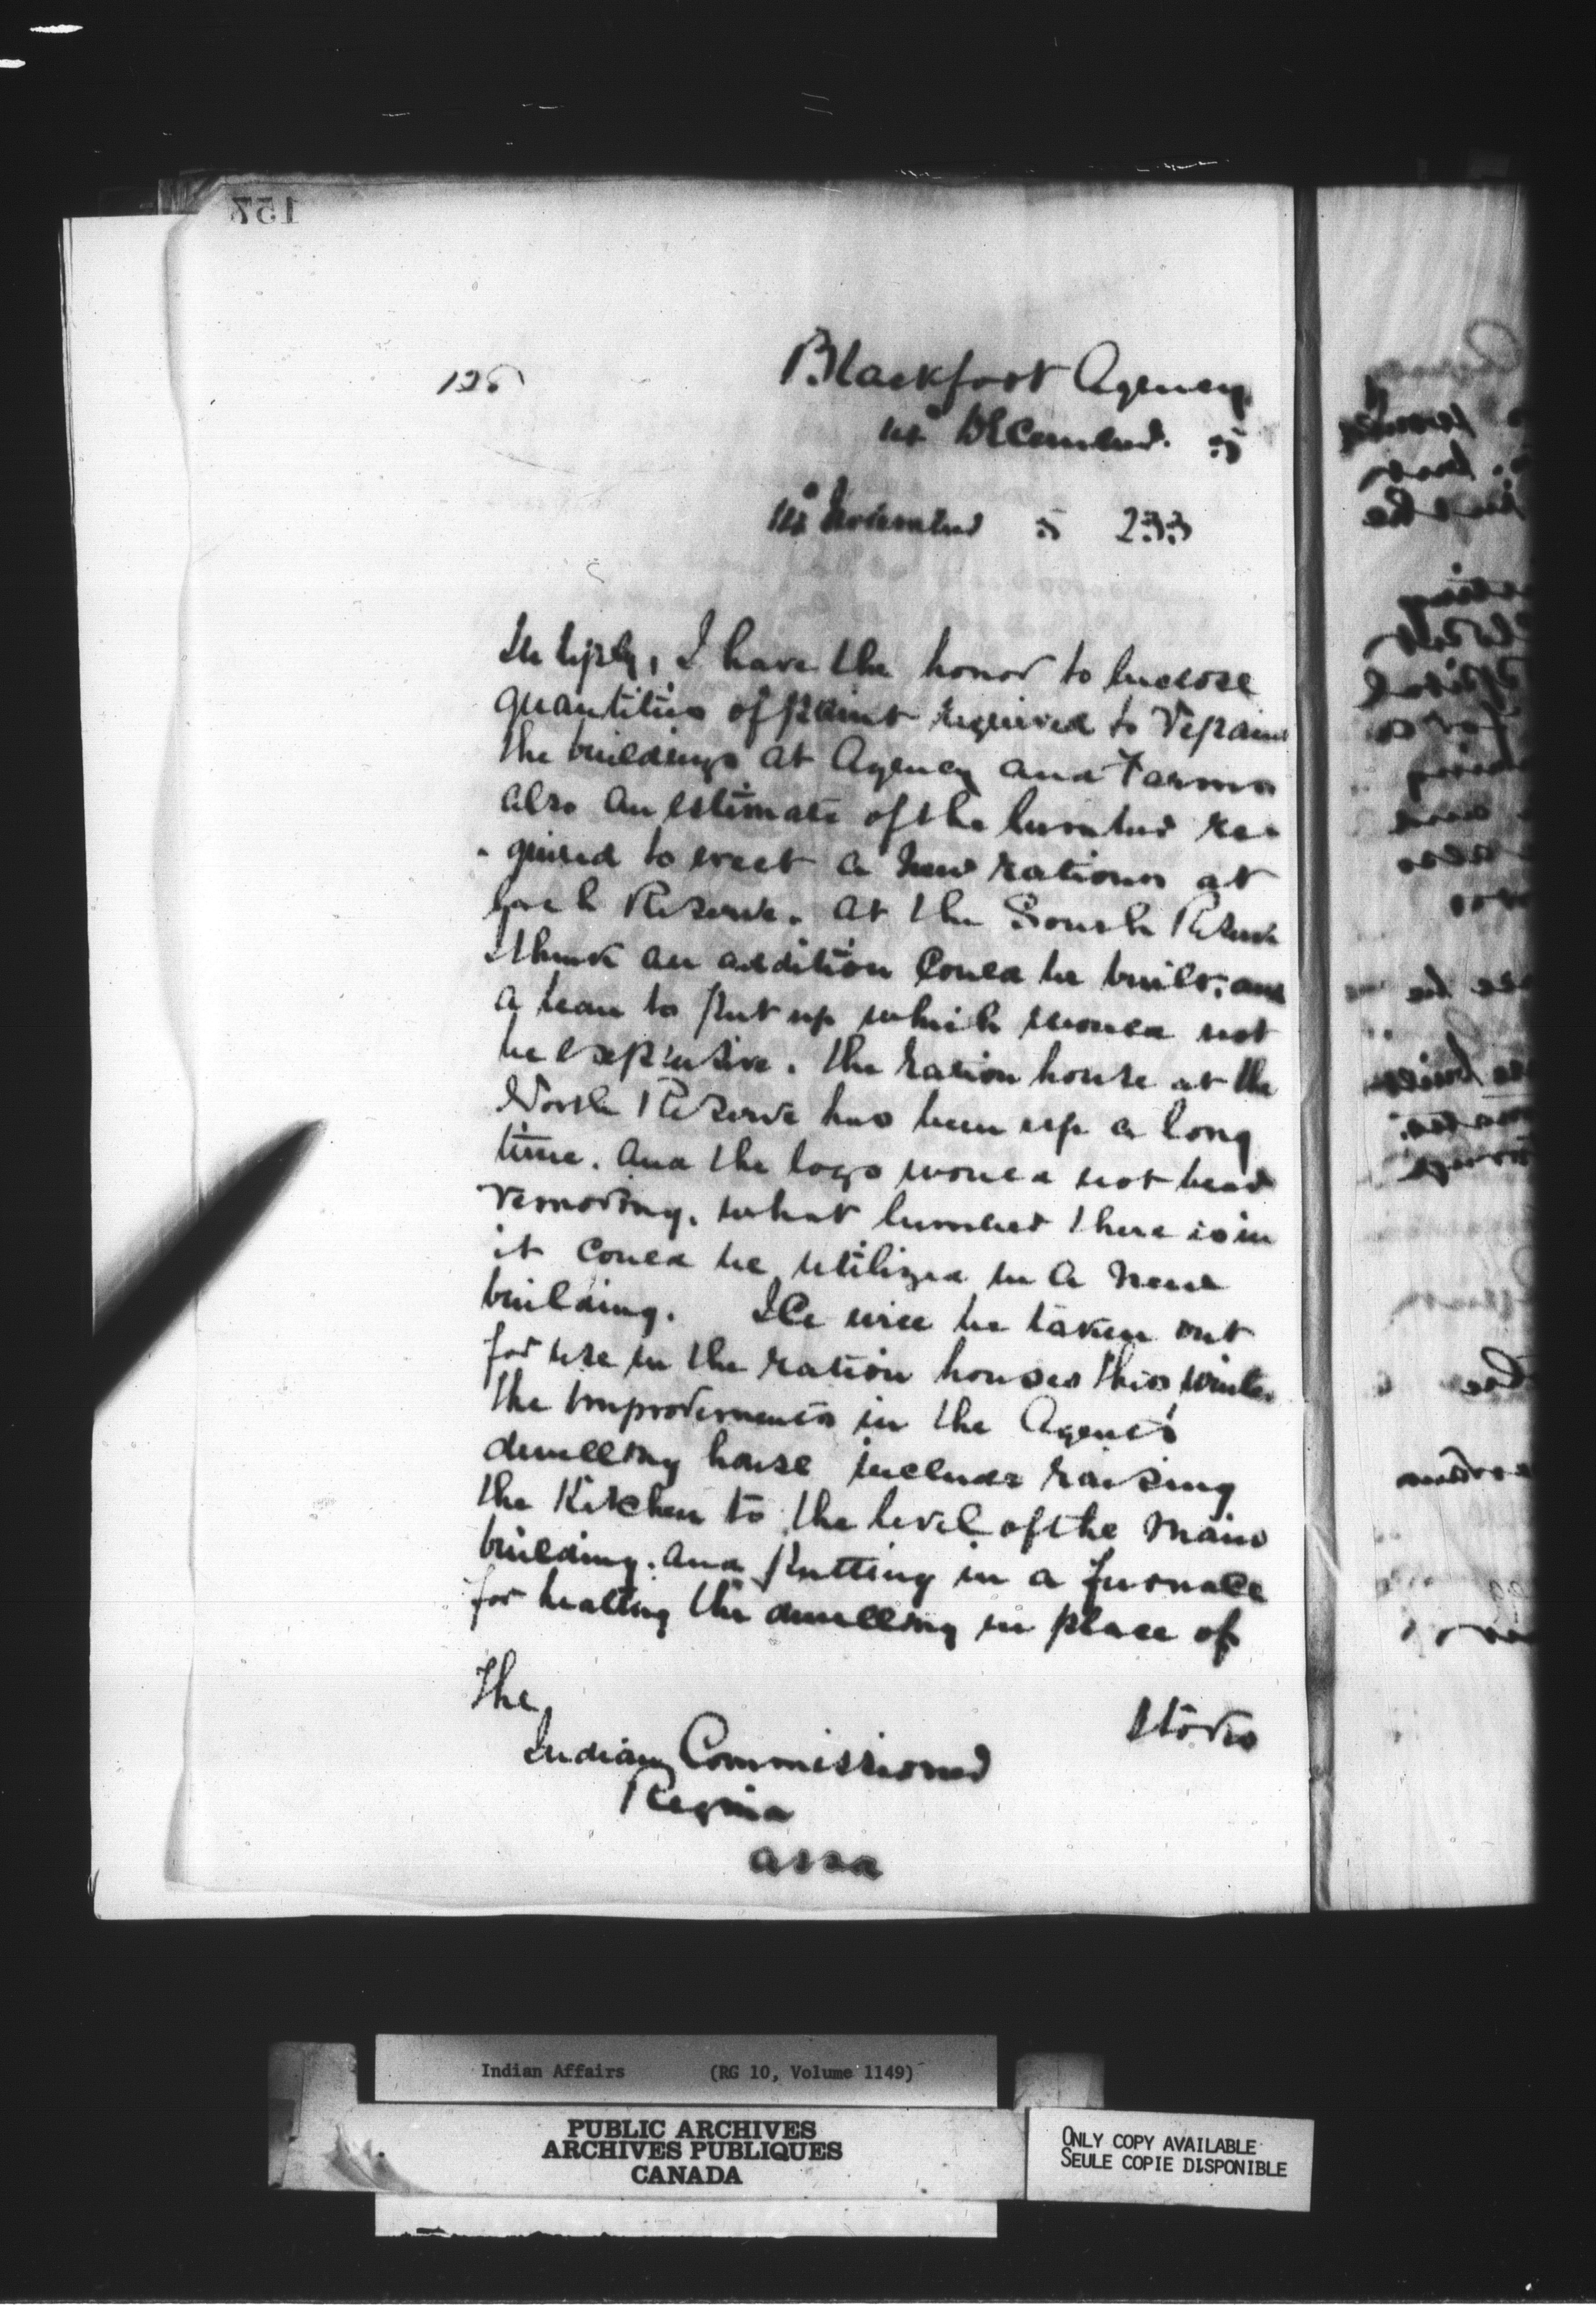 157
126
Blackfoot Agency
1st December. 5
1st November 5 233
In reply, I have the honor to inclose
quantities of paint required to repaint
the buildings at Agency and Farms
also an estimate of the lumber re-
-quired to erect a new rations at
each Reserve. At the South Reserve
I think an addition could be built; and
a lean to put up which would not
be expensive. The ration house at the
North Reserve has been up a long
time. and the logs would not bear
removing. what lumber there is in
it could be utilized in a new
building. Ice will be taken out
for use in the ration houses this winter
The improvements in the Agent's
dwelling house include raising
the Kitchen to the level of the main
building. and putting in a furnace
for heating the dwelling in place of
stoves
The
Indian Commissioner
Regina
assa
Indian Affairs (RG 10, Volume 1149)
PUBLIC ARCHIVES
ARCHIVES PUBLIQUES
CANADA
ONLY COPY AVAILABLE
SEULE COPIE DISPONIBLE